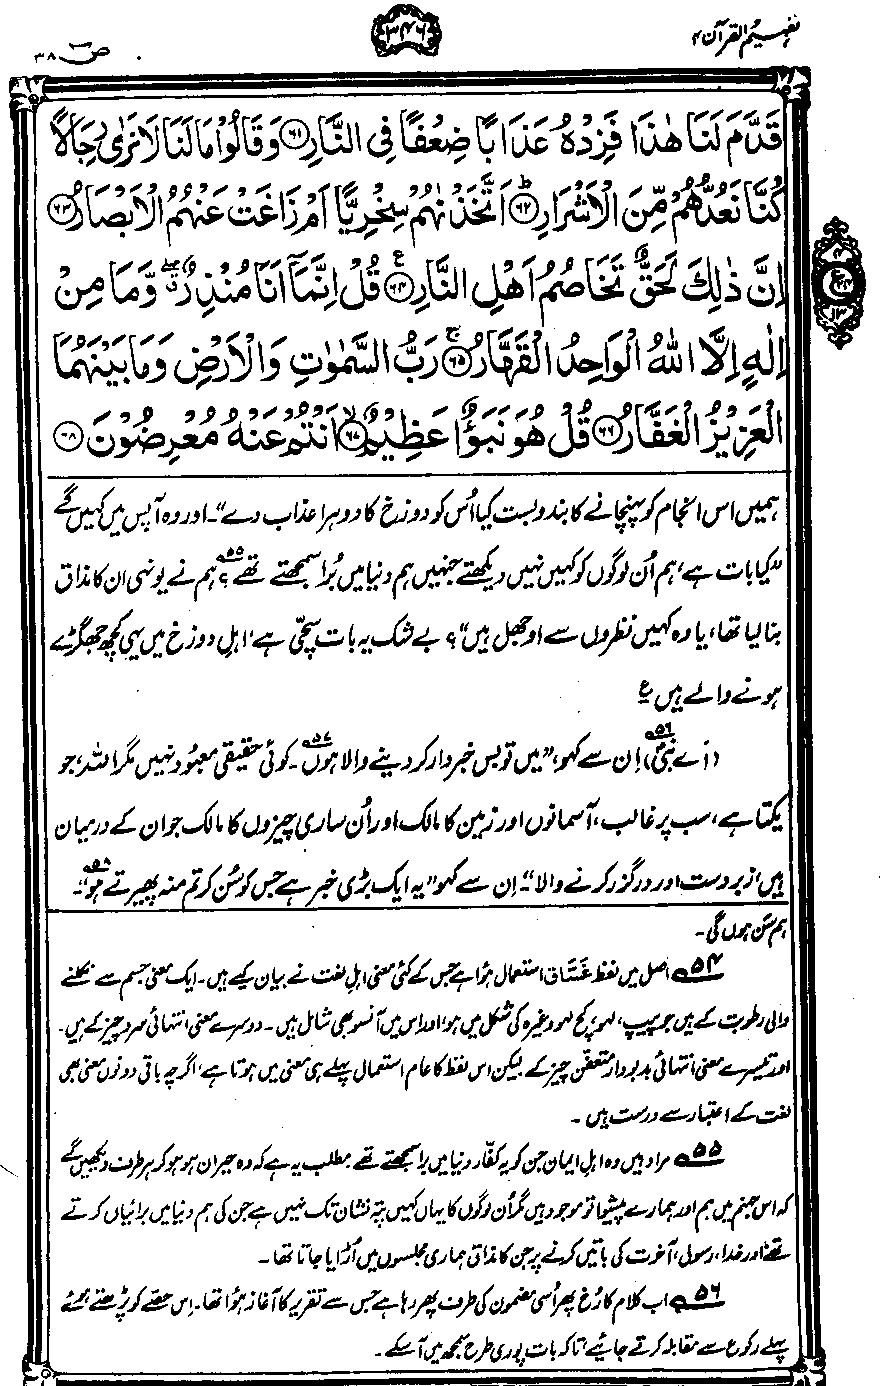 تفہیم القرآن ۴
۳۴۶
صٓ ۳۸
قَدَّمَ لَنَا هٰذَا فَزِدْهُ عَذَابًا ضِعْفًا فِي النَّارِ ﴿۶۱﴾ وَقَالُوْا مَا لَنَا لَا نَرٰى رِجَالًا
كُنَّا نَعُدُّهُمْ مِّنَ الْاَشْرَارِ ﴿۶۲﴾ؕ اَتَّخَذْنٰهُمْ سِخْرِيًّا اَمْ زَاغَتْ عَنْهُمُ الْاَبْصَارُ ﴿۶۳﴾
اِنَّ ذٰلِكَ لَحَقٌّ تَخَاصُمُ اَهْلِ النَّارِ ﴿۶۴﴾ع قُلْ اِنَّمَاۤ اَنَا مُنْذِرٌ ۖۗ وَّمَا مِنْ
اِلٰهٍ اِلَّا اللّٰهُ الْوَاحِدُ الْقَهَّارُ ﴿۶۵﴾ۚ رَبُّ السَّمٰوٰتِ وَالْاَرْضِ وَمَا بَيْنَهُمَا
الْعَزِيْزُ الْغَفَّارُ ﴿۶۶﴾ قُلْ هُوَ نَبَؤٌا عَظِيْمٌ ﴿۶۷﴾ۙ اَنْتُمْ عَنْهُ مُعْرِضُوْنَ ﴿۶۸﴾
ہمیں اس انجام کو پہنچانے کا بندوبست کیا اُس کو دوزخ کا دوہرا عذاب دے“۔ اور وہ آپس میں کہیں گے
”کیا بات ہے، ہم اُن لوگوں کو کہیں نہیں دیکھتے جنہیں ہم دنیا میں بُرا سمجھتے تھے؟۵۵ ہم نے یونہی ان کا مذاق
بنا لیا تھا، یا وہ کہیں نظروں سے اوجھل ہیں“؟ بے شک یہ بات سچّی ہے، اہلِ دوزخ میں یہی کچھ جھگڑے
ہونے والے ہیں ع
(اَے نبیؐ)۵۶ اِن سے کہو، ”میں تو بس خبردار کر دینے والا ہوں۵۷۔ کوئی حقیقی معبُود نہیں مگر اللہ، جو
یکتا ہے، سب پر غالب، آسمانوں اور زمین کا مالک اور اُن ساری چیزوں کا مالک جو ان کے درمیان
ہیں، زبردست اور درگزر کرنے والا“۔ اِن سے کہو ”یہ ایک بڑی خبر ہے جس کو سُن کر تم منہ پھیرتے ہو۵۸“۔
ہم سِن ہوں گی۔
۵۴ اصل میں لفظ غَسَّاق استعمال ہوا ہے جس کے کئی معنی اہلِ لغت نے بیان کیے ہیں۔ ایک معنی جسم سے نکلنے
والی رطوبت کے ہیں جو پیپ، لہو، کچ لہو وغیرہ کی شکل میں ہو، اور اس میں آنسو بھی شامل ہیں۔ دوسرے معنی انتہائی سرد چیز کے ہیں۔
اور تیسرے معنی انتہائی بدبودار متعفّن چیز کے۔ لیکن اس لفظ کا عام استعمال پہلے ہی معنی میں ہوتا ہے، اگرچہ باقی دونوں معنی بھی
لغت کے اعتبار سے درست ہیں۔
۵۵ مراد ہیں وہ اہلِ ایمان جن کو یہ کفّار دنیا میں برا سمجھتے تھے۔ مطلب یہ ہے کہ وہ حیران ہو ہو کر ہر طرف دیکھیں گے
کہ اس جہنم میں ہم اور ہمارے پیشوا تو موجود ہیں مگر اُن لوگوں کا یہاں کہیں پتہ نشان تک نہیں ہے جن کی ہم دنیا میں برائیاں کرتے
تھے اور خدا، رسول، آخرت کی باتیں کرنے پر جن کا مذاق ہماری مجلسوں میں اُڑایا جاتا تھا۔
۵۶ اب کلام کا رُخ پھر اُسی مضمون کی طرف پھر رہا ہے جس سے تقریر کا آغاز ہوا تھا۔ اِس حصّے کو پڑھتے ہوئے
پہلے رکوع سے مقابلہ کرتے جائیے، تاکہ بات پوری طرح سمجھ میں آ سکے۔